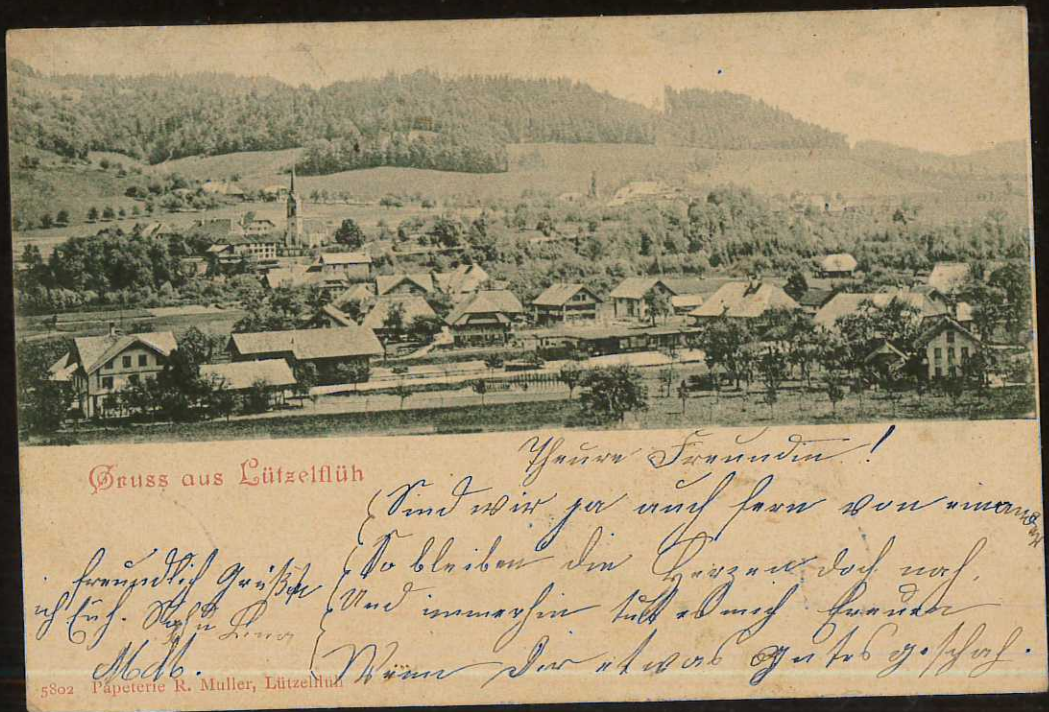 Gruss aus Lützelflüh
Theure Freundin!
Sind wir ja auch fern von einander
So bleiben die Herzen doch nah.
Und immerhin tut es mich freuen
Wenn Dir etwas Gutes geschah.
freundlich Grüßt
ich Euch.
5802 Papeterie R. Muller, Lützelflüh